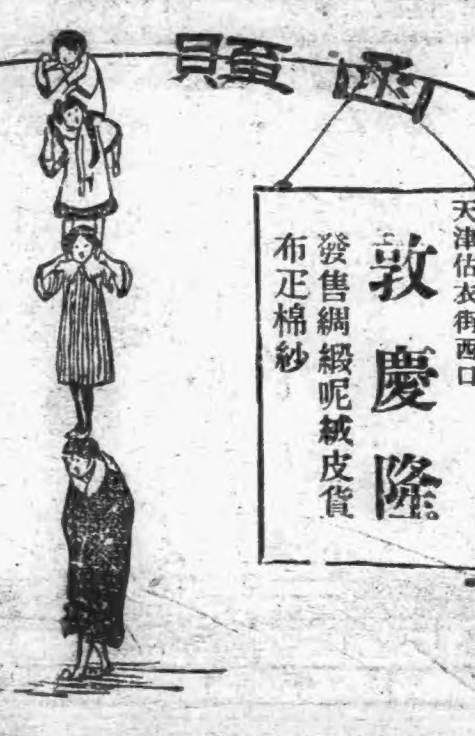 函
天津估衣街西口
敦慶隆
發售綢緞呢絨皮貨
布疋棉紗